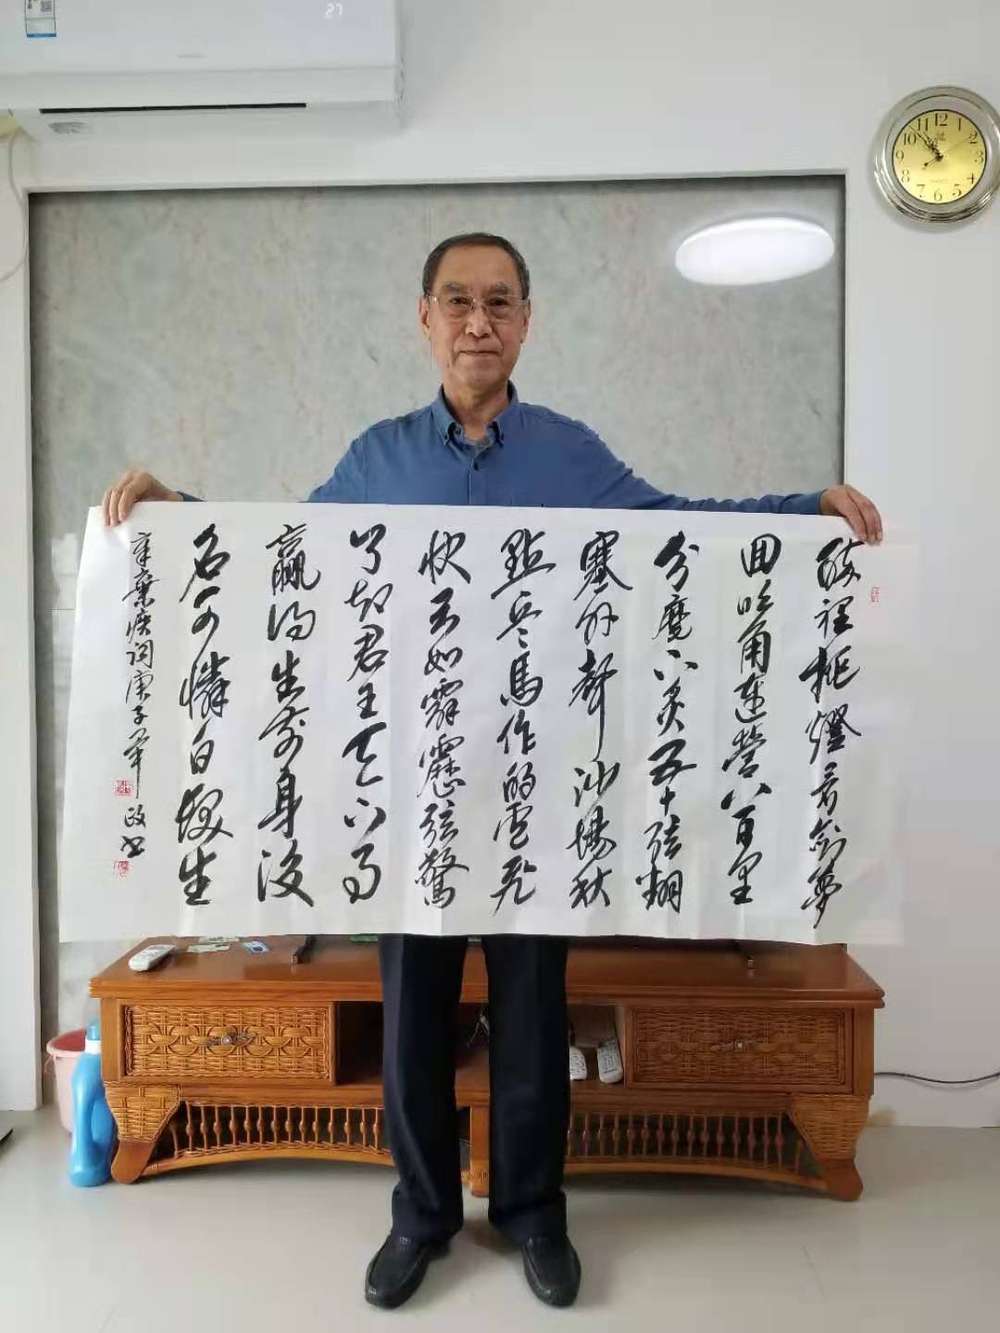 醉裡挑燈看劍夢
回吹角連營八百里
分麾下炙五十弦翻
塞外聲沙場秋
點兵馬作的盧飛
快弓如霹靂弦驚
了却君王天下事
贏得生前身後
名可憐白髮生
辛棄疾詞庚子年
27
12
1
2
3
4
5
6
7
8
9
10
11